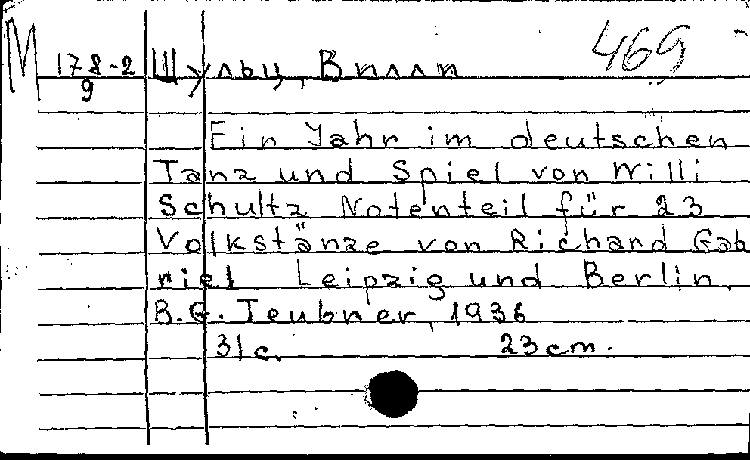 М 178-2 Шульц, Вилли 469
9
Ein Jahr im deutschen
Tanz und Spiel von Willi
Schultz Notenteil für 23
Volkstänze von Richard Gab
riel Leipzig und Berlin,
B.G. Teubner, 1936
31 c. 23 cm.